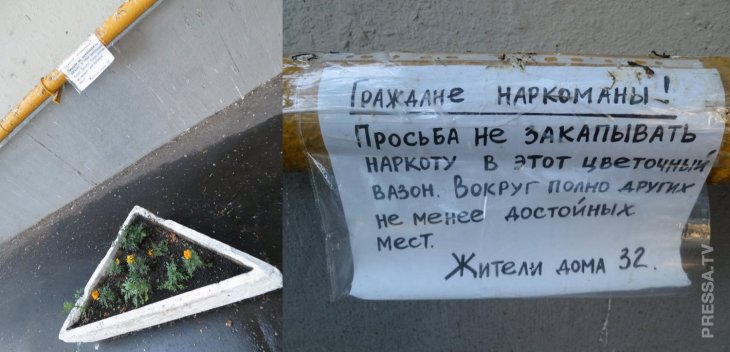 Граждане наркоманы!
Просьба не закапывать
наркоту в этот цветочный
вазон. Вокруг полно других
не менее достойных
мест.
Жители дома 32.
PRESSA.TV